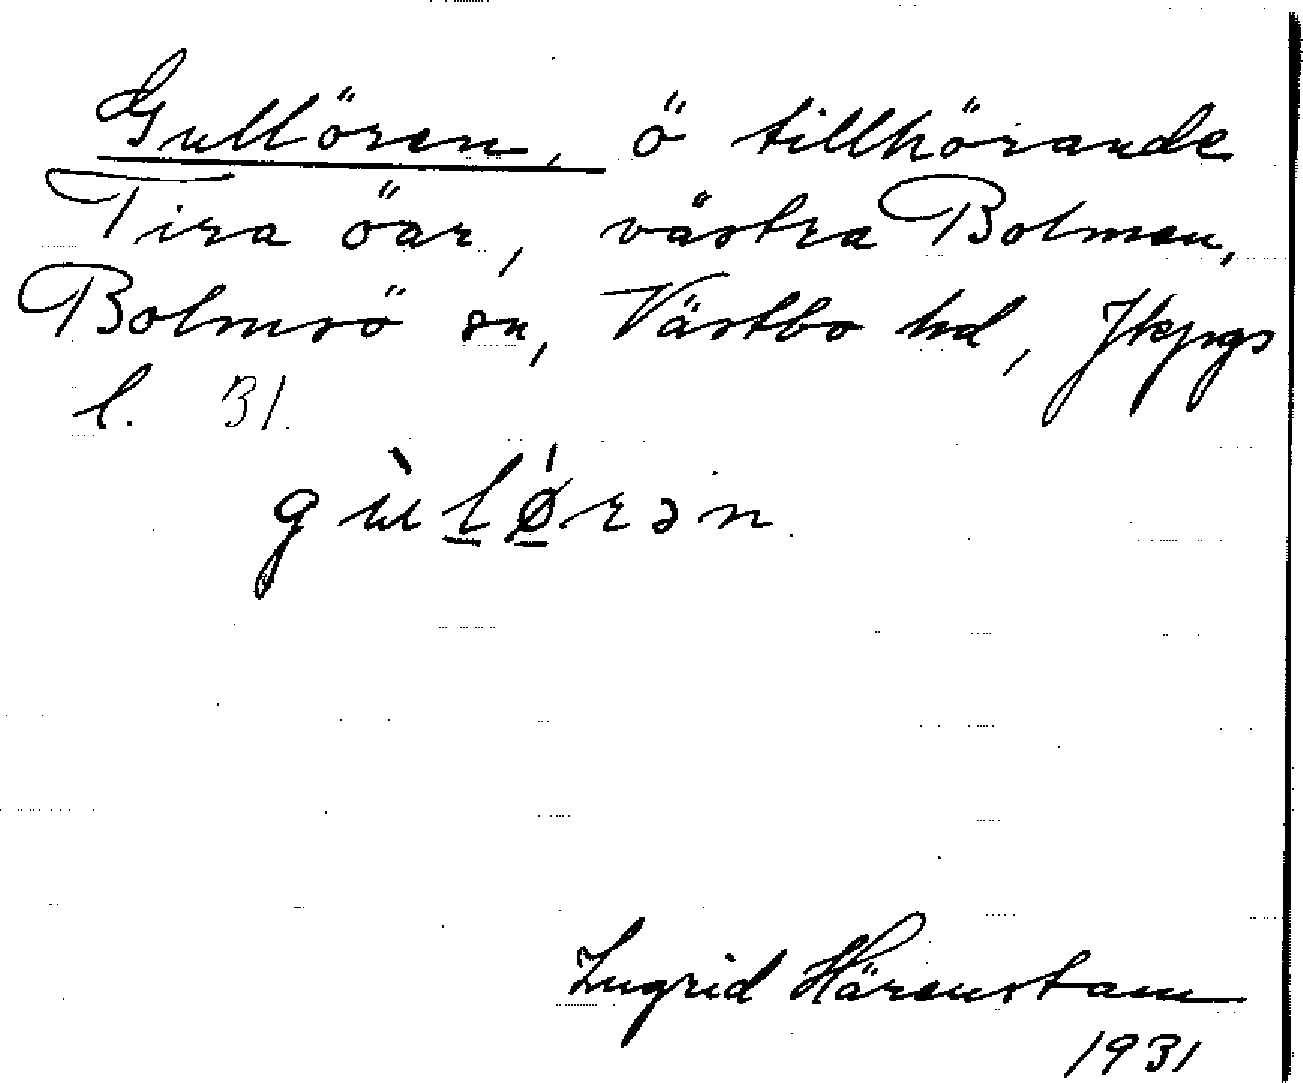 Gullören, ö tillhörande
Tira öar, västra Bolmen,
Bolmsö sn, Västbo hd, Jkpgs
l. 31.
gùlǿrən
Ingrid Härenstam
1931